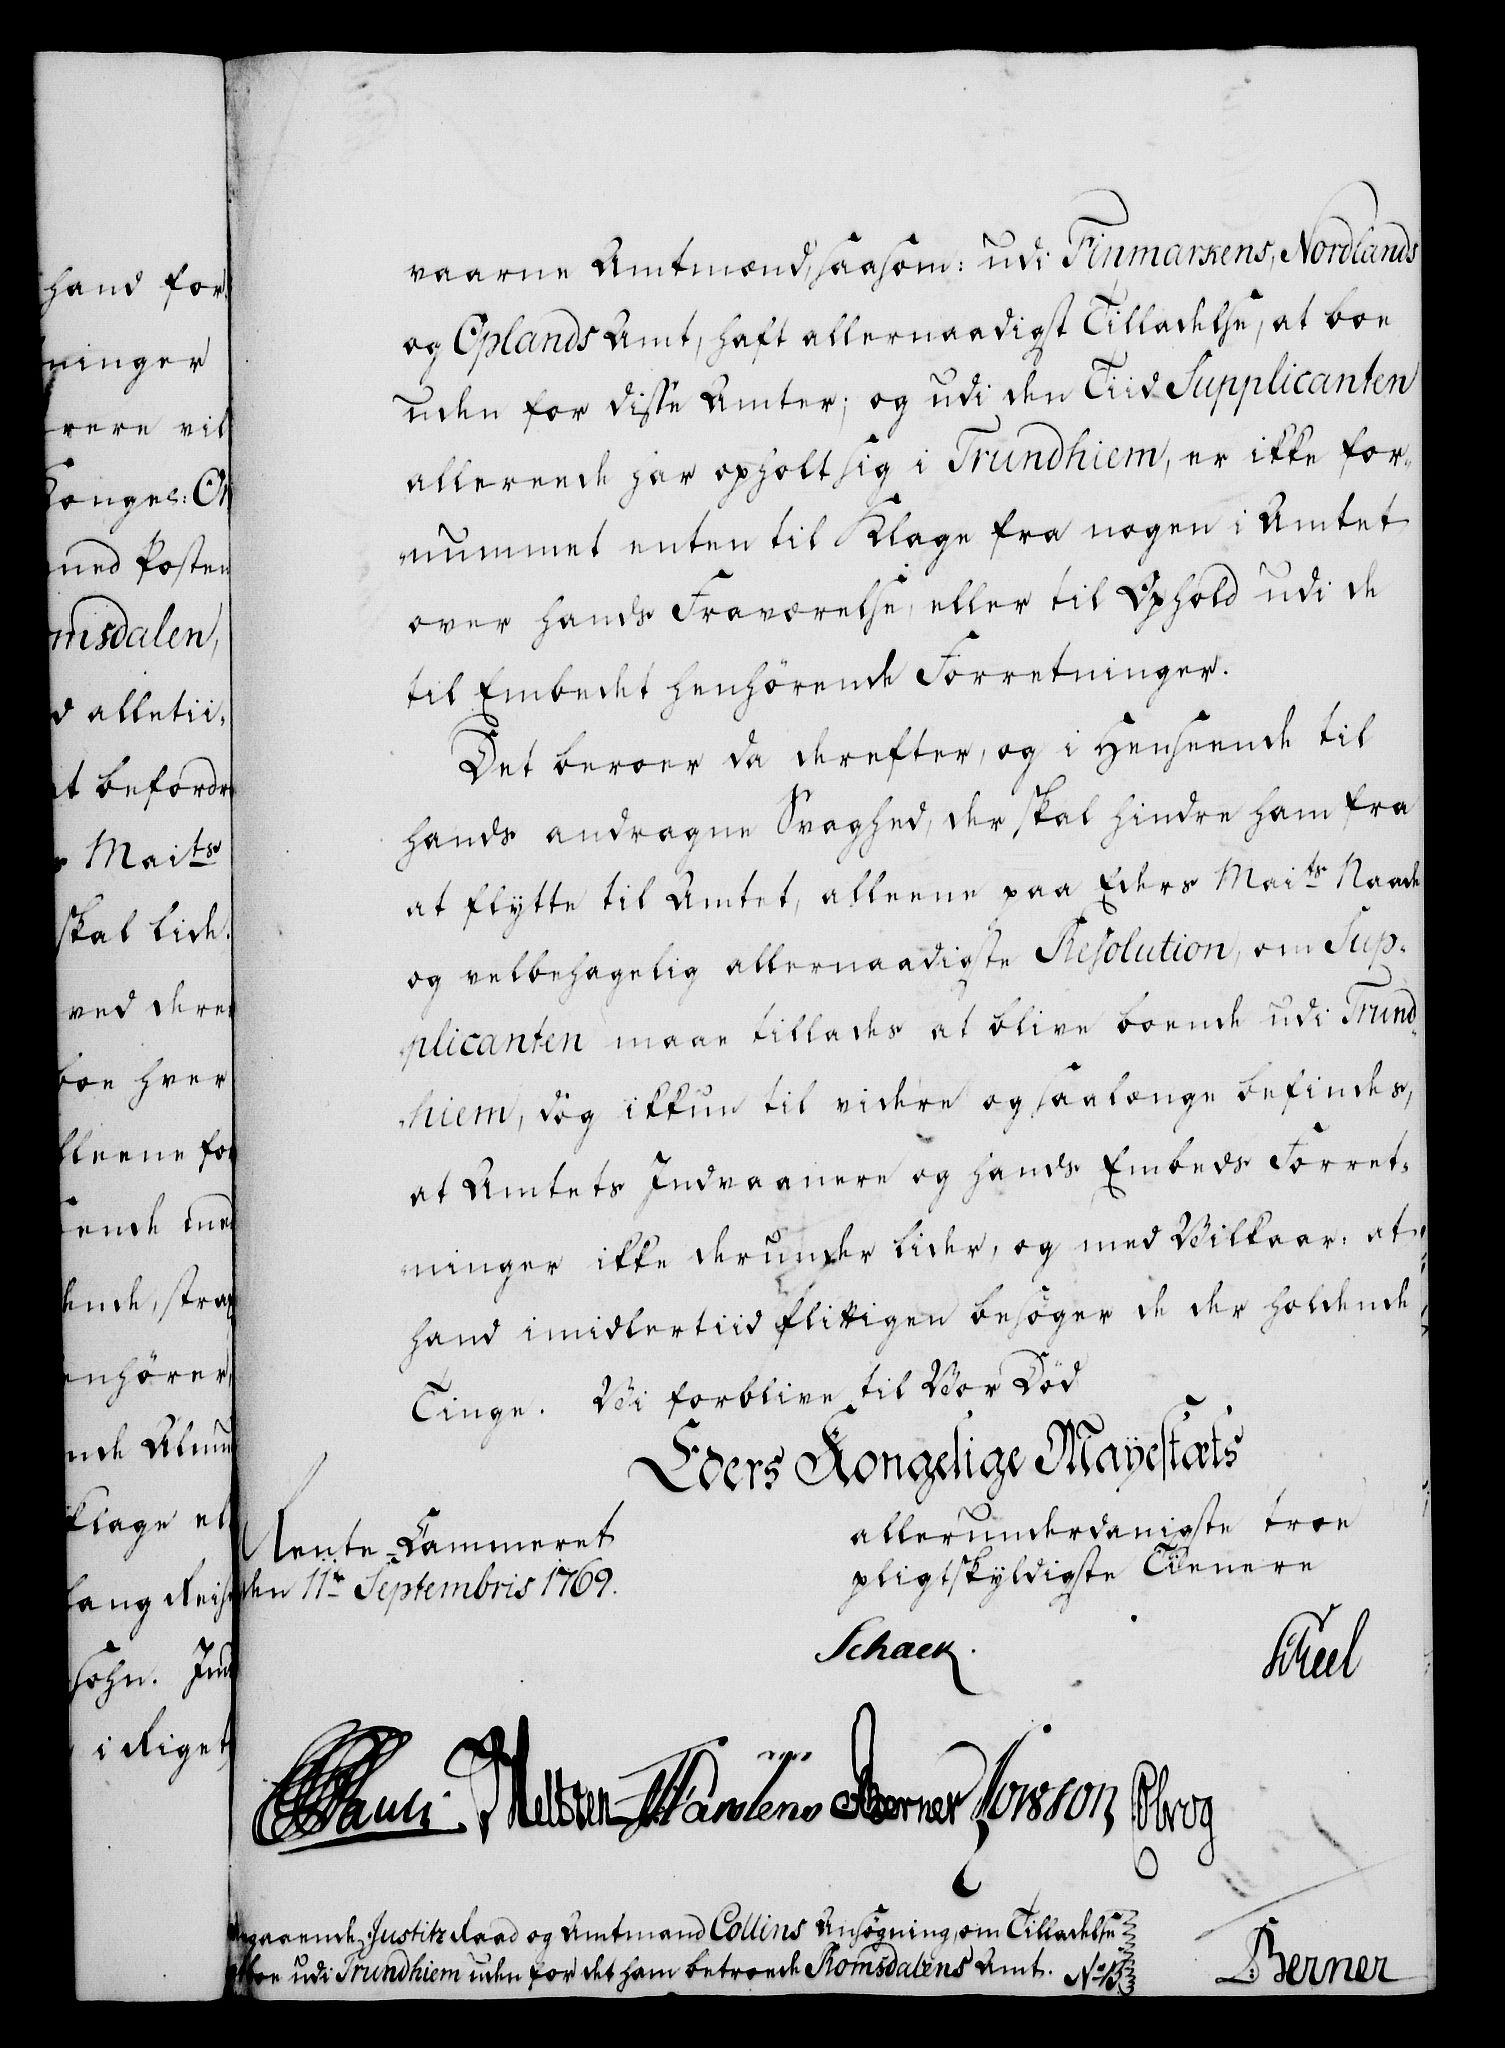 hand for¬
ninger
rere vil
Konges: O
med Posten
msdalen,
d alletii¬
t befordr
Maits
skal lide.
ved dere
boe hver
lleene for
ende me
dende, strax
enhörer,
nde Almu
klage el
lang Reise
sohn. Ind
i Riget
vaarne Amtmænd, saasom: udi Finmarkens, Nordlands
og Oplands Amt, haft allernaadigst Tilladelse, at boe
uden for disse Amter; og udi den Tiid Supplicanten
allereede har opholt sig i Trundhiem, er ikke for¬
nummet enten til Klage fra nogen i Amtet
over hands Fraværelse, eller til Ophold udi de
til Embedet henhörende Forretninger.
Det beroer da derefter, og i Henseende til
hands andragne Svaghed, der skal hindre ham fra
at flytte til Amtet, alleene paa Eders Maits Naade
og velbehagelig allernaadigste Resolution, om Sup¬
plicanten maae tillades at blive boende udi Trund¬
hiem, dog ikkun til videre og saalænge befindes,
at Amtets Indvaanere og hands Embeds Forret¬
ninger ikke derunder lider, og med Vilkaar: at
hand imidlertiid flittigen besöger de der holdende
Tinge. Vi forblive til Vor Död
Eders Kongelige Mayestæts
allerunderdanigste troe
pligtskyldigste Tienere
Rente-Cammeret
den 11te Septembris 1769.
Schack. Scheel
Pauli. Berner
Berner
angaaende Justitz Raad og Amtmand Collins Ansögning, om Tilladelse
at boe udi Trundhiem uden for det ham betroede Romsdalens Amt. No 13